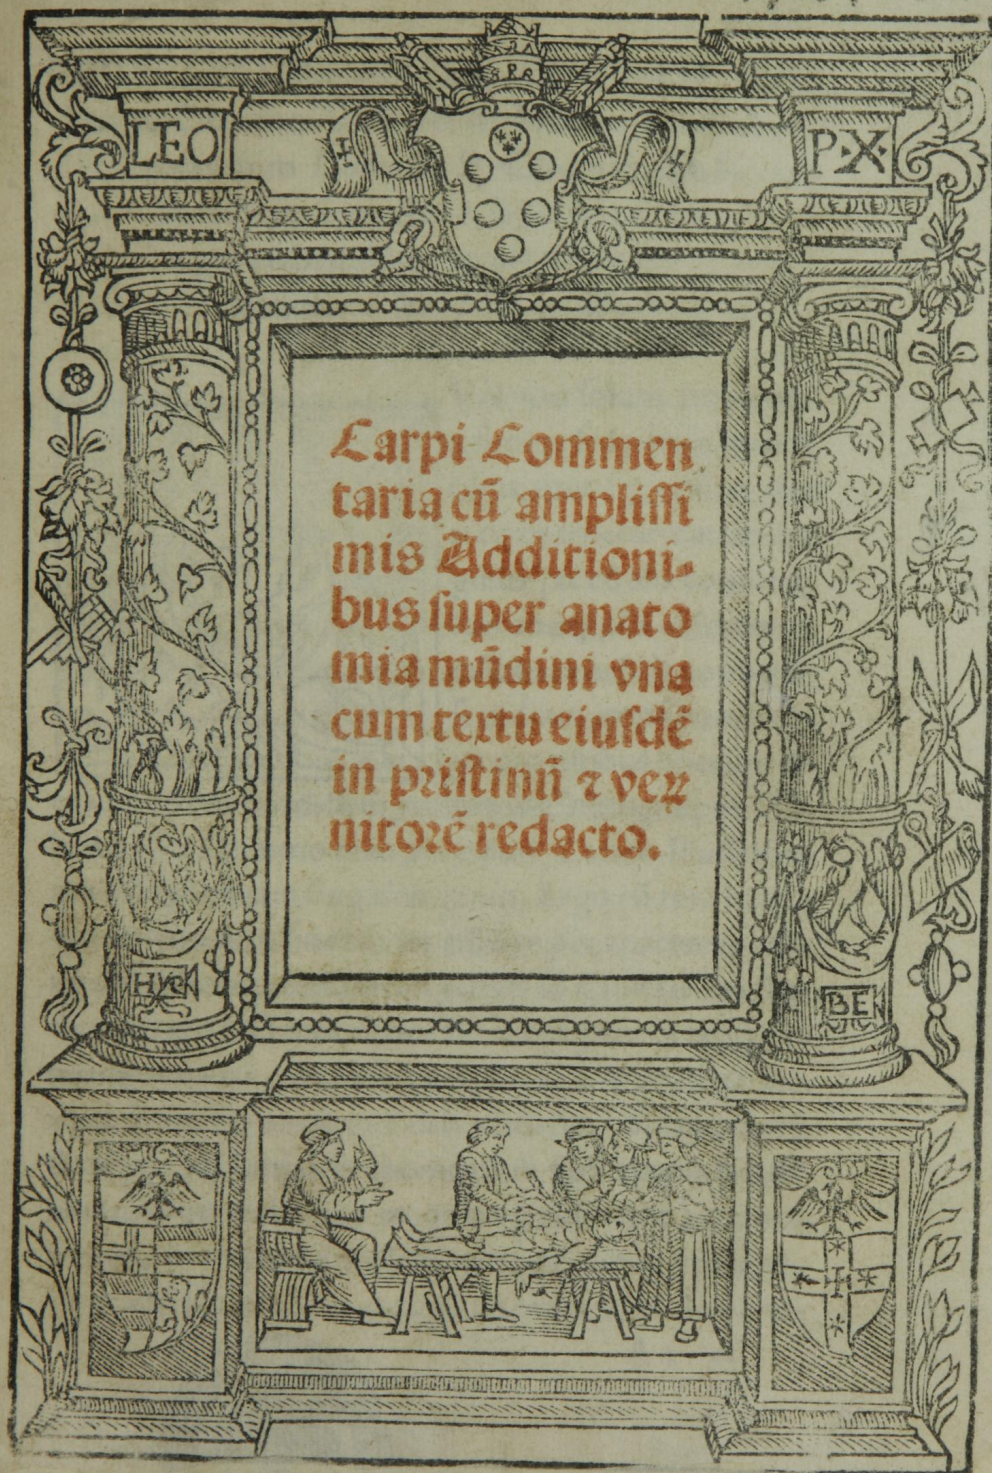 LEO
P·X·
Carpi Commen
taria cũ ampliſſi
mis Additioni-
bus ſuper anato
mia mũdini vna
cum textu eiuſdẽ
in priſtinũ ⁊ veꝝ
nitorẽ redacto.
BE